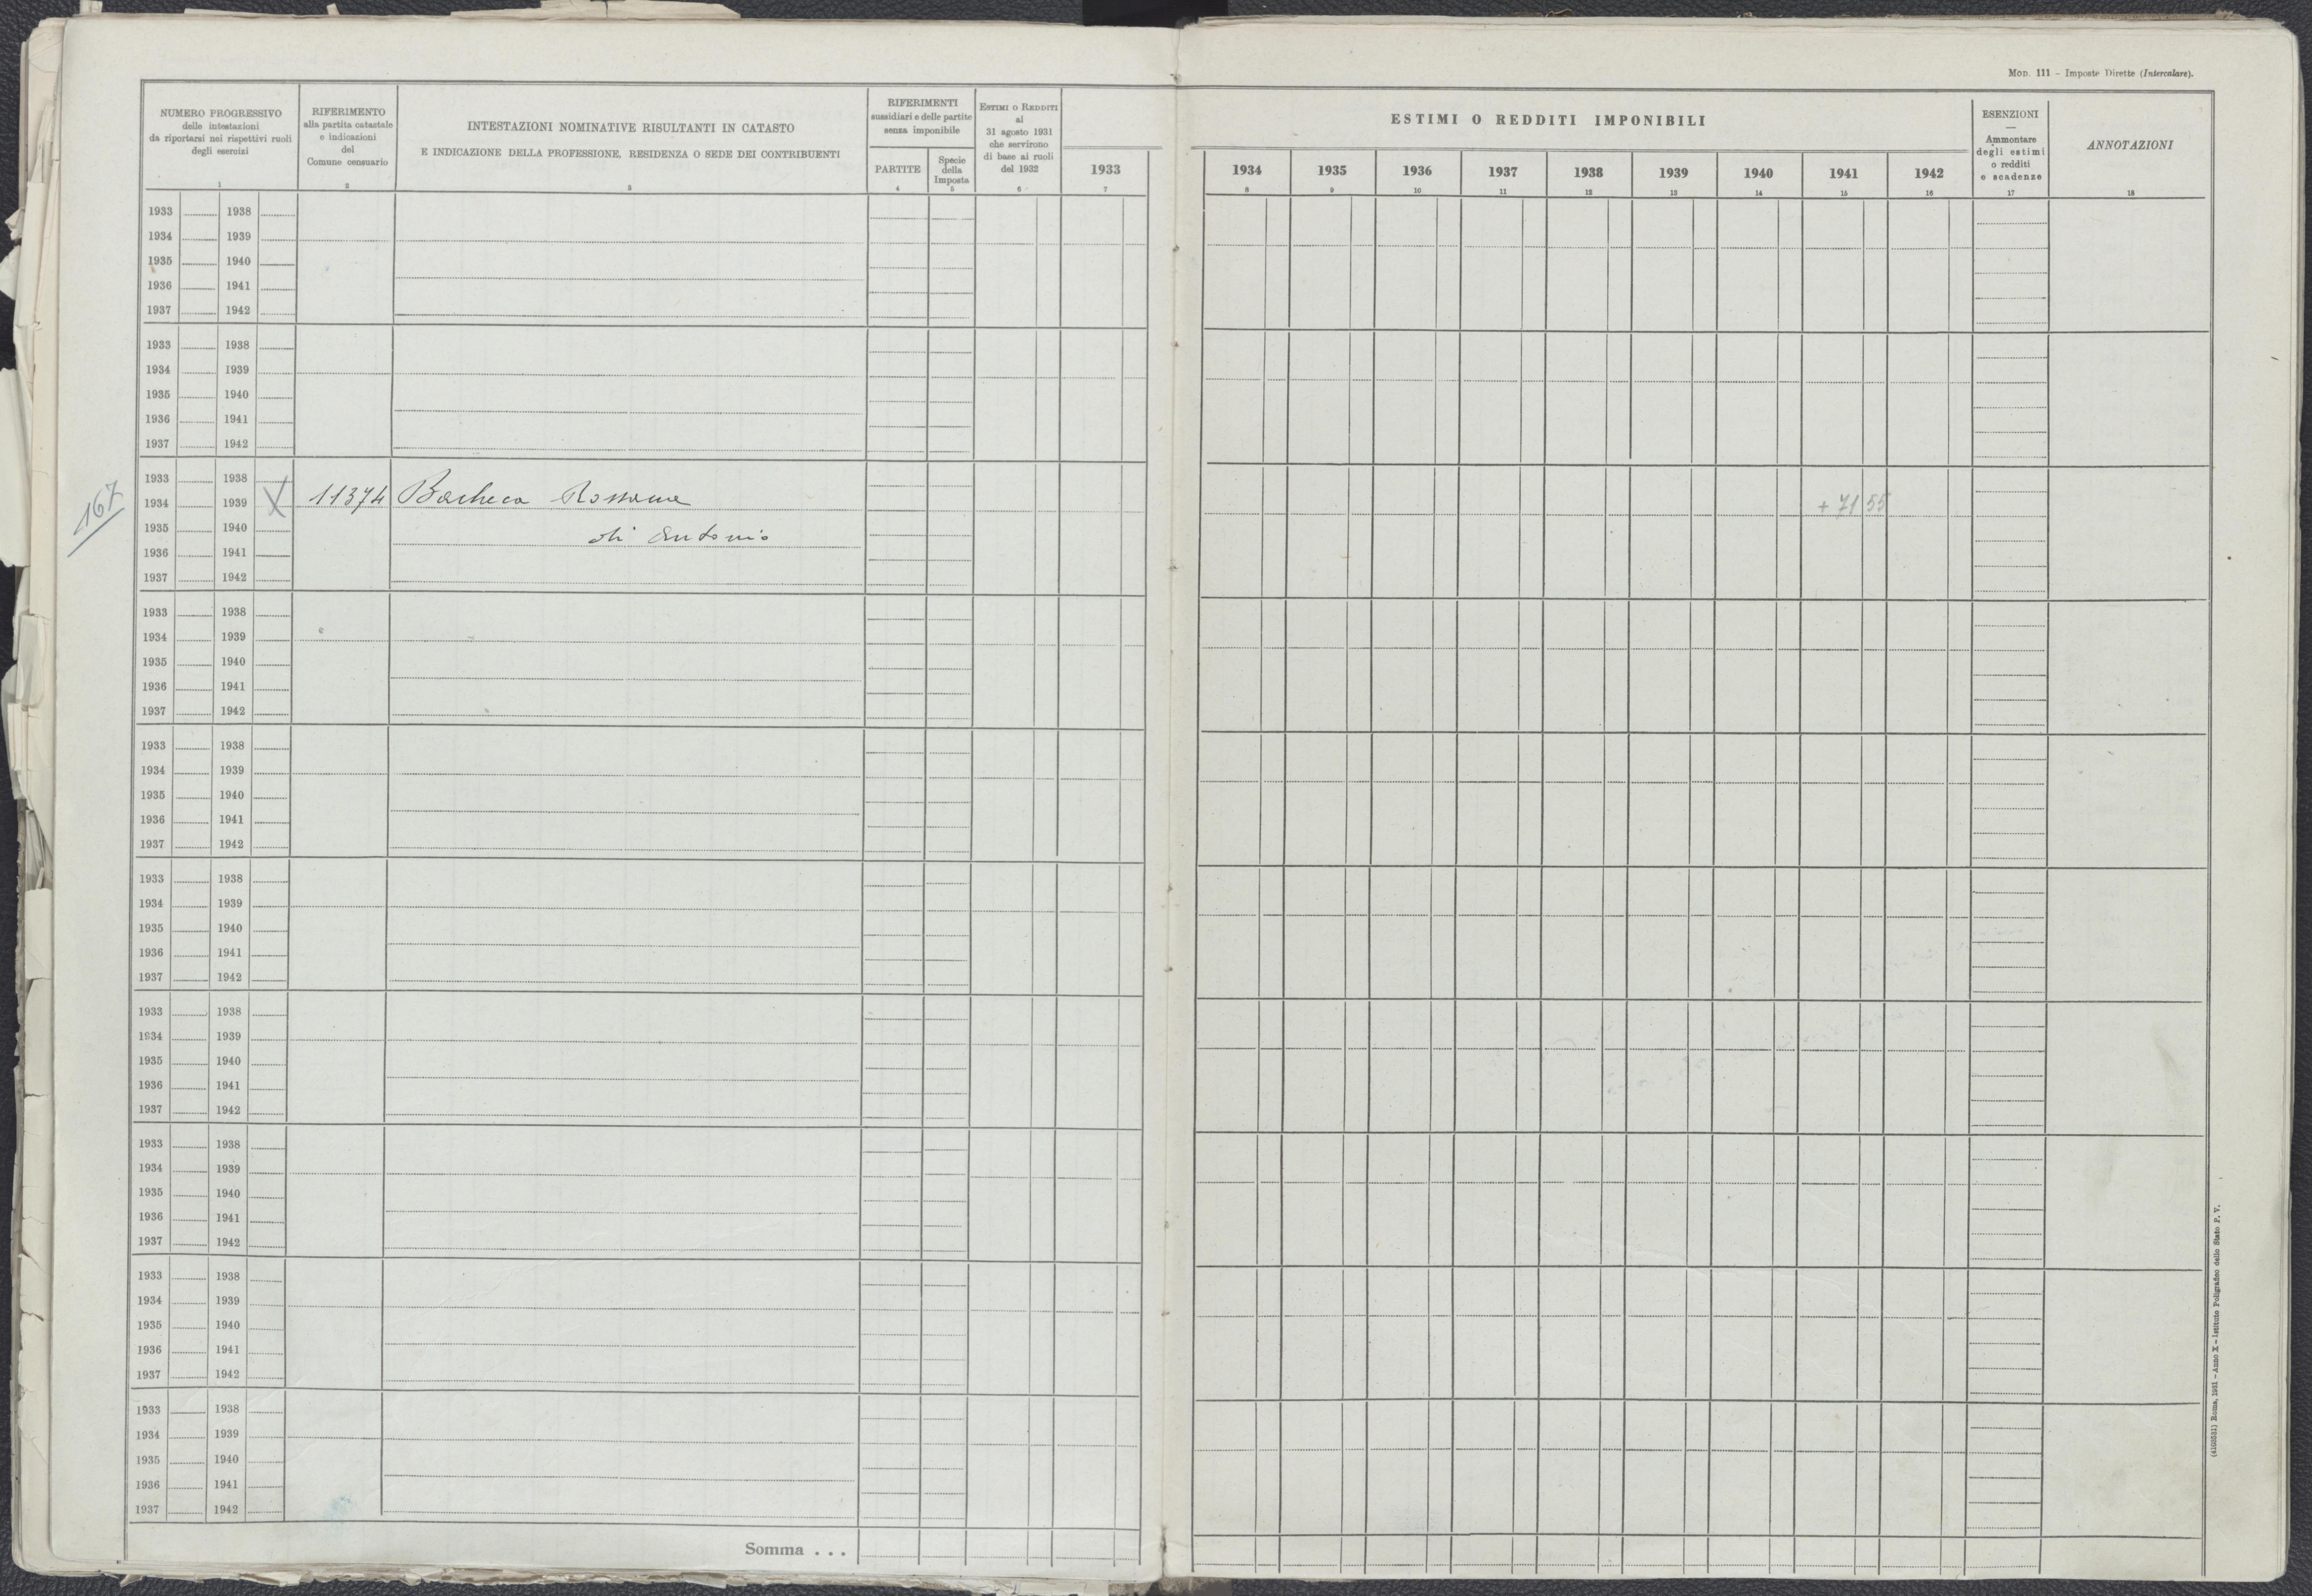 Mod. 111 – Imposte Dirette (Intercalare).
NUMERO PROGRESSIVO
delle intestazioni
da riportarsi nei rispettivi ruoli
degli esercizi
1
RIFERIMENTO
alla partita catastale
e indicazioni
del
Comune censuario
2
INTESTAZIONI NOMINATIVE RISULTANTI IN CATASTO
E INDICAZIONE DELLA PROFESSIONE, RESIDENZA O SEDE DEI CONTRIBUENTI
3
RIFERIMENTI
sussidiari e delle partite
senza imponibile
PARTITE
4
Specie
della
Imposta
5
Estimi o Redditi
al
31 agosto 1931
che servirono
di base ai ruoli
del 1932
6
ESTIMI O REDDITI IMPONIBILI
1933 1934 1935 1936 1937 1938 1939 1940 1941 1942
7 8 9 10 11 12 13 14 15 16
ESENZIONI
—
Ammontare
degli estimi
o redditi
e scadenze
17
ANNOTAZIONI
18
1933 1938
1934 1939
1935 1940
1936 1941
1937 1942
1933 1938
1934 1939
1935 1940
1936 1941
1937 1942
167
1933 1938
1934 1939 X 11374 Bacheca Rossana + 71 55
1935 1940 di Antonio
1936 1941
1937 1942
1933 1938
1934 1939
1935 1940
1936 1941
1937 1942
1933 1938
1934 1939
1935 1940
1936 1941
1937 1942
1933 1938
1934 1939
1935 1940
1936 1941
1937 1942
1933 1938
1934 1939
1935 1940
1936 1941
1937 1942
1933 1938
1934 1939
1935 1940
1936 1941
1937 1942
1933 1938
1934 1939
1935 1940
1936 1941
1937 1942
1933 1938
1934 1939
1935 1940
1936 1941
1937 1942
Somma . . .
Roma, 1931 – Anno X – Istituto Poligrafico dello Stato P. V.